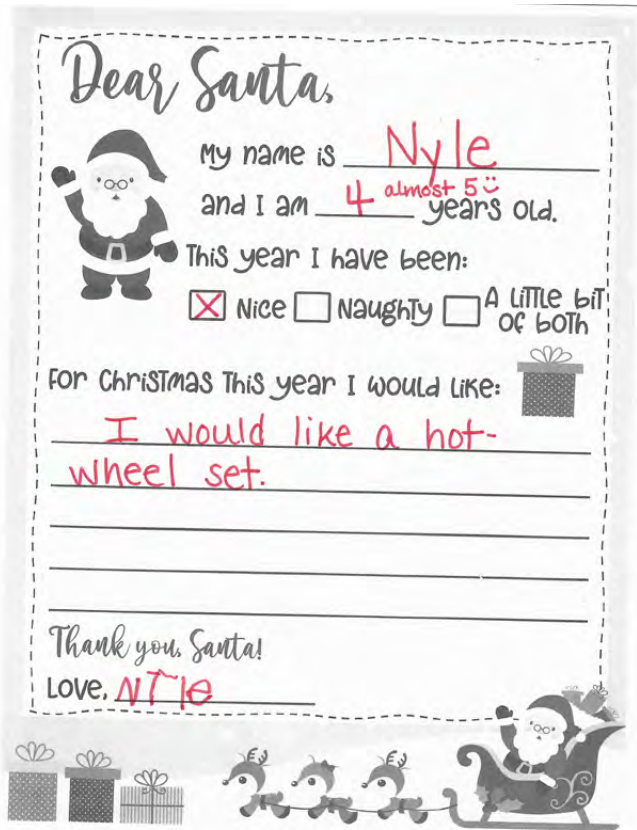 Dear Santa,
My name is Nyle
almost 5 ü
and I am 4 years old.
This year I have been:
☒ Nice ☐ Naughty ☐ A little bit of both
For Christmas this year I would like:
I would like a hot-
wheel set.
Thank you, Santa!
Love, Nyle